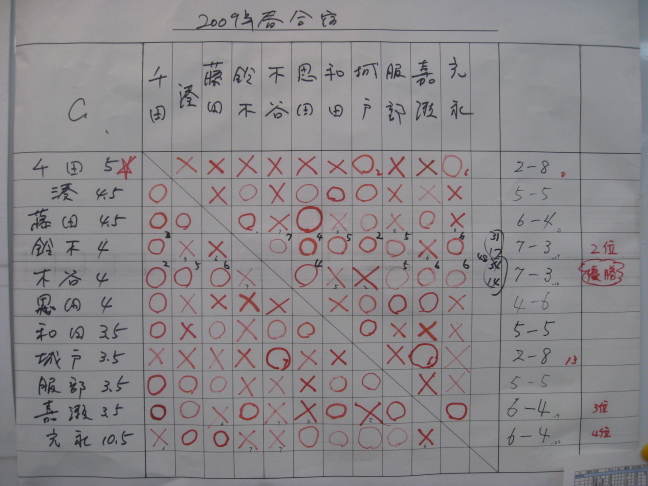 2009年春合宿
C. 千田 湊 藤田 鈴木 木谷 恩田 和田 城戸 服部 嘉瀬 充永
千田 5 × × × × × × ○ × × ○ 2-8
湊 4.5 ○ × ○ × ○ ○ ○ × × × 5-5
藤田 4.5 ○ ○ ○ × ○ × ○ × ○ × 6-4
鈴木 4 ○ × × ○ ○ ○ ○ ○ × ○ 7-3 2位
木谷 4 ○ ○ ○ × ○ × × ○ ○ ○ 7-3 優勝
恩田 4 ○ × × × × ○ ○ ○ ○ × 4-6
和田 3.5 ○ × ○ × ○ ○ ○ × × × 5-5
城戸 3.5 × × × × ○ × × × ○ × 2-8 13
服部 3.5 ○ ○ ○ × × × ○ ○ × × 5-5
嘉瀬 3.5 ○ ○ × ○ × × ○ × ○ ○ 6-4 3位
充永 10.5 × ○ ○ × × ○ ○ ○ ○ × 6-4 4位